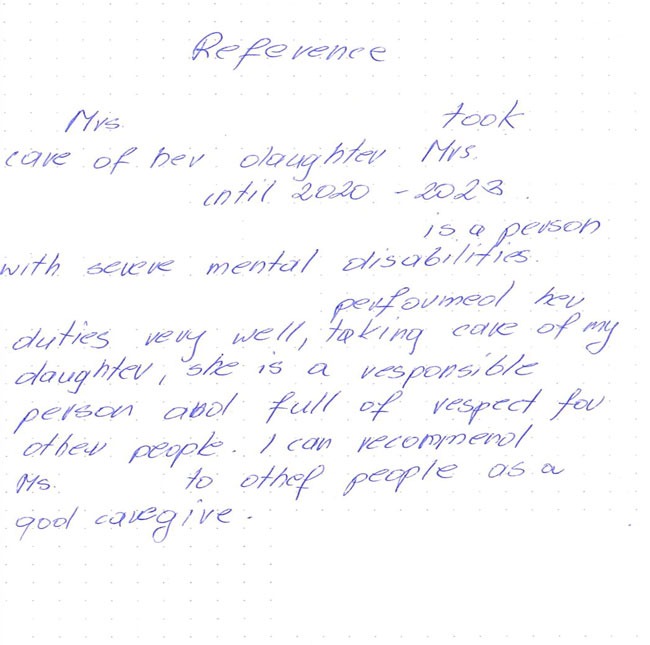 Reference
Mrs. took
care of her daughter Mrs.
until 2020 - 2023.
is a person
with severe mental disabilities.
performed her
duties very well, taking care of my
daughter, she is a responsible
person and full of respect for
other people. I can recommend
Ms. to other people as a
good caregive.